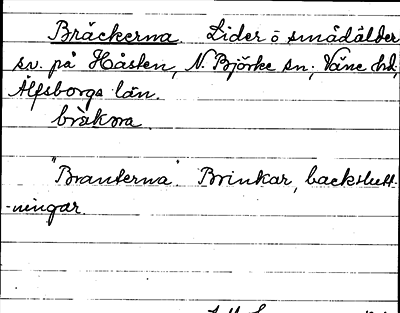 Bräckerna Lider o smådälder
sv. på Håsten, N. Björke sn; Väne hd,
Älfsborgs län.
bräkɷra.
"Branterna". Brinkar, backslutt-
-ningar.